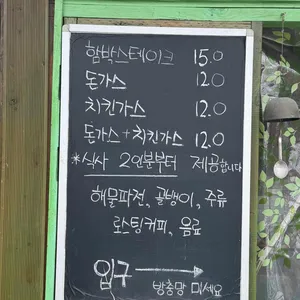 함박스테이크 15.0
돈가스 12.0
치킨가스 12.0
돈가스+치킨가스 12.0
*식사 2인분부터 제공합니다
해물파전, 골뱅이, 주류
로스팅커피, 음료
입구 →
방충망 미세요